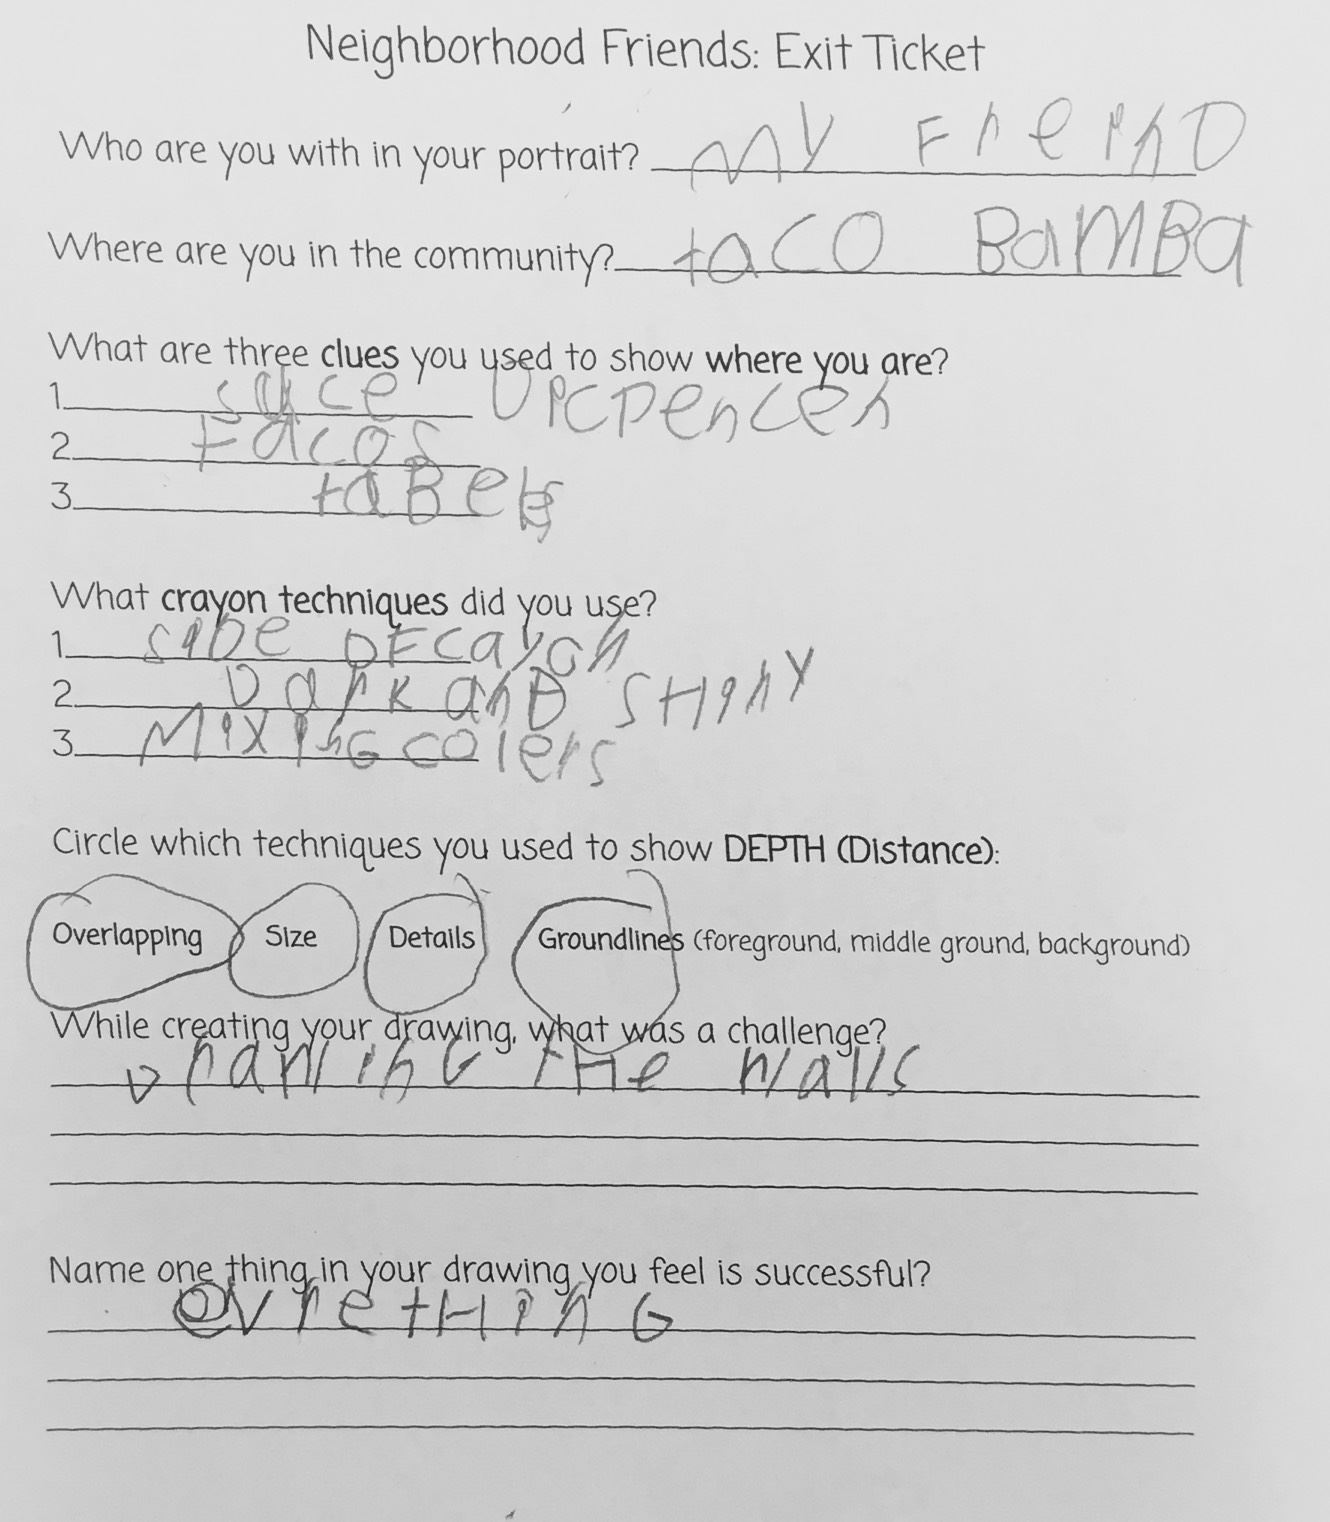 Neighborhood Friends: Exit Ticket
Who are you with in your portrait? MY FreinD
Where are you in the community? taco BaMBa
What are three clues you used to show where you are?
1. sace
2. tacos
3. taBels
What crayon techniques did you use?
1. siDe OF cayon
2. Dark anD SHiny
3. MixinG colers
Circle which techniques you used to show DEPTH (Distance):
Overlapping Size Details Groundlines (foreground, middle ground, background)
While creating your drawing, what was a challenge?
DrawinG tHe walls
Name one thing in your drawing you feel is successful?
evretHinG